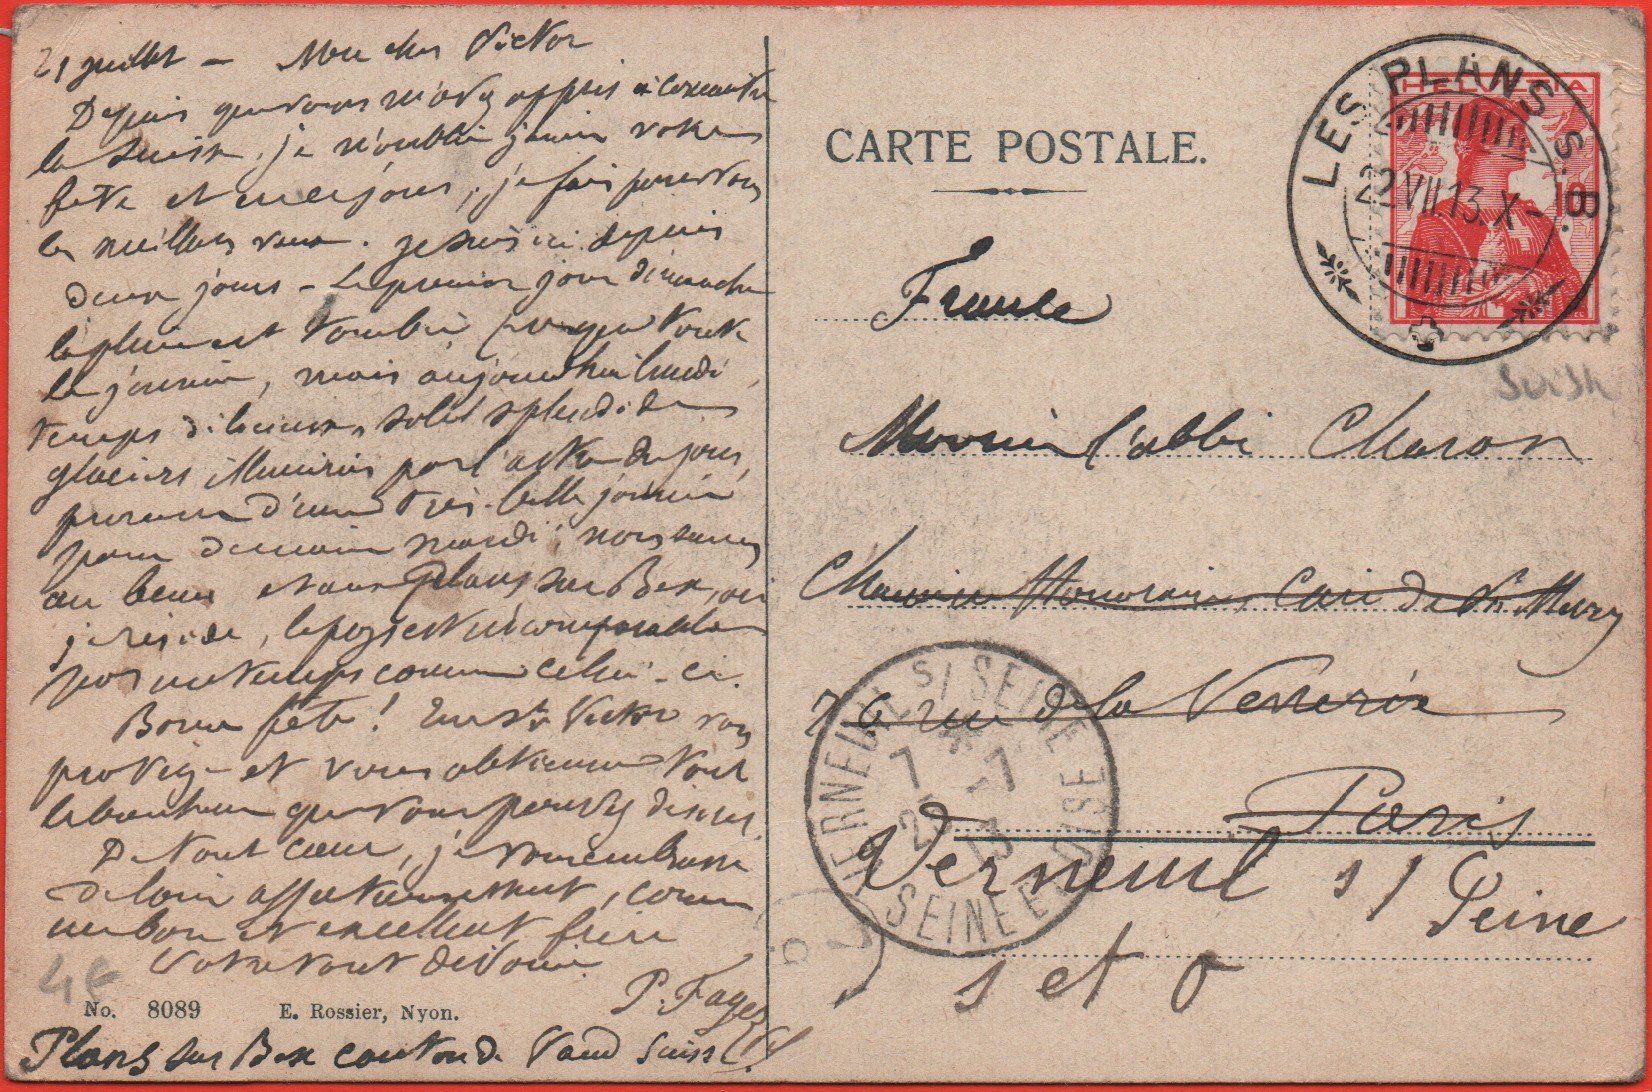 21 juillet – Mon cher Victor
Depuis que vous m'avez appris à connaître
la Suisse, je n'oublie jamais votre
fête et ce jour, je fais pour vous
les meilleurs vœux. je suis ici depuis
deux jours – Le premier jour dimanche
la pluie est tombée presque toute
la journée, mais aujourd'hui lundi,
temps délicieux, soleil splendide
glaciers illuminés par l'astre du jour,
promesse d'une très belle journée
pour demain mardi; nous sommes
au beau et aux Plans sur Bex, où
je réside, le pays est incomparable
par un temps comme celui-ci.
Bonne fête! Que St Victor vous
protège et vous obtienne tout
le bonheur que vous pouvez désirer.
De tout cœur, je vous embrasse
de loin affectueusement, comme
un bon et excellent frère
Votre tout dévoué
P. Fages
4€
No. 8089 E. Rossier, Nyon.
Plans sur Bex canton de Vaud Suisse
CARTE POSTALE.
HELVETIA
10
LES PLANS S. B.
22 VII 13. X -
Suisse
France
Monsieur l'abbé Charon
Chanoine Honoraire, Curé de St Merry
76 rue de la Verrerie
Paris
VERNEUIL S/ SEINE
SEINE ET OISE
Verneuil s/ Seine
s et o